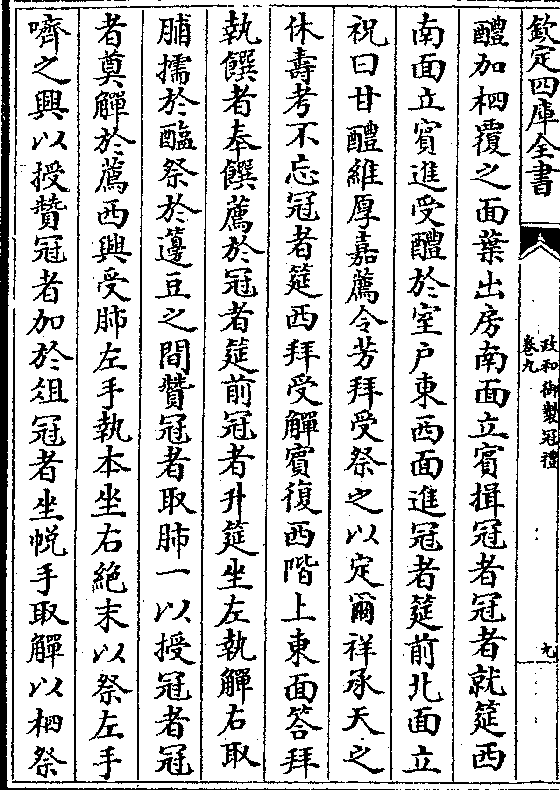 欽定四庫全書
政和御製冠禮
卷九
九
醴加柶覆之面葉出房南面立賓揖冠者冠者就筵西
南面立賓進受醴於室戶東西面進冠者筵前北面立
祝曰甘醴維厚嘉薦令芳拜受祭之以定爾祥承天之
休壽考不忘冠者筵西拜受觶賓復西階上東面答拜
執饌者奉饌薦於冠者筵前冠者升筵坐左執觶右取
脯擩於醢祭於籩豆之間贊冠者取肺一以授冠者冠
者奠觶於薦西興受肺左手執本坐右絕末以祭左手
嚌之興以授贊冠者加於俎冠者坐帨手取觶以柶祭